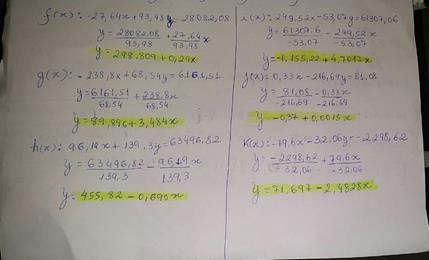 f(x): -27,64x+93,98y=28082,08
y=28082.08/93,98+27,64/93,98x
y=298.809+0,29x
g(x): -238,8x+68,54y=6161,51
y=6161,51/68,54+238,8x/68,54
y=89,896+3,484x
h(x): 96,19x+139,3y=63496,82
y=63496,82/139,3-96,19x/139,3
y=455,82-0,690x
i(x): 249,52x-53,07y=61307,06
y=61307.6/-53,07-249,52x/-53,07
y=-1.155,22+4,7017x
j(x): 0,33x-216,69y=81,08
y=81,08/-216,69-0,33x/-216,69
y=-0,37+0,0015x
K(x): -79,6x-32,06y=-2298,62
y=-2298,62/-32,06+79,6x/-32,06
y=71,697-2,4828x